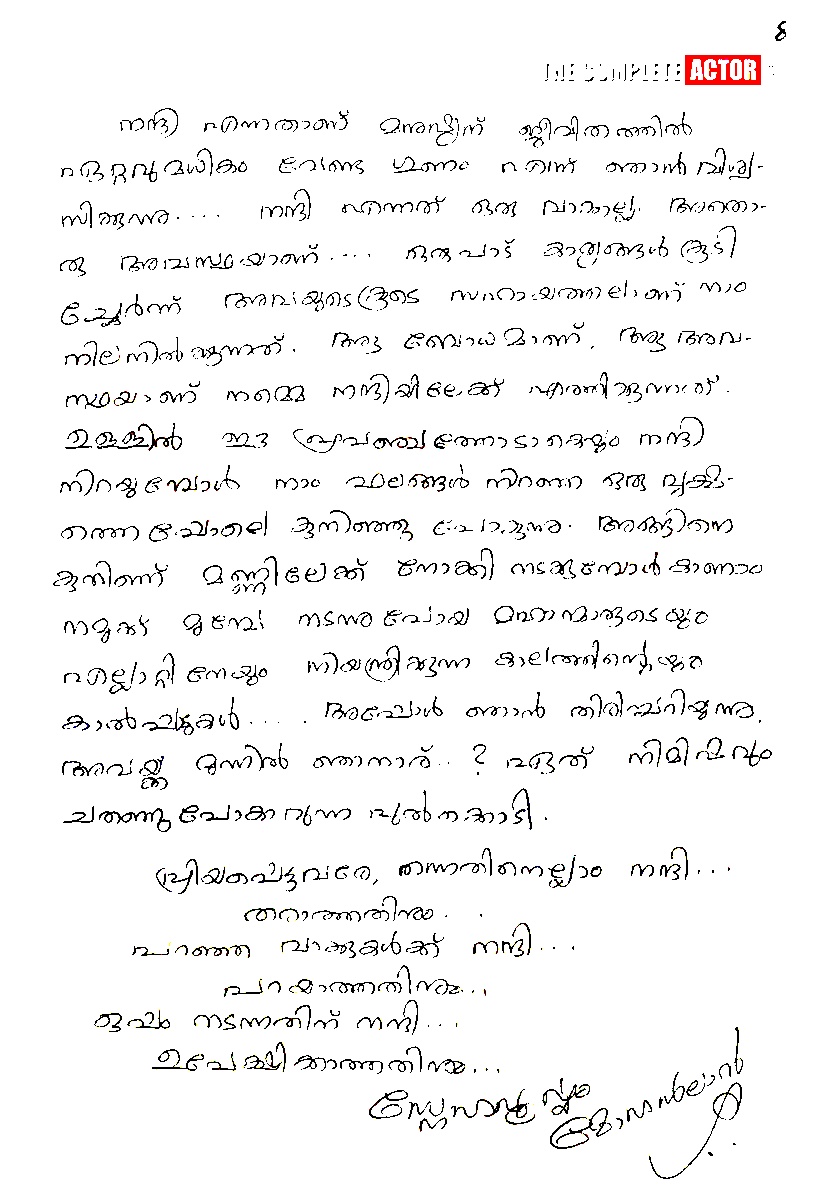 8
THE COMPLETE ACTOR
നന്ദി എന്നതാണ് മനുഷ്യന് ജീവിതത്തിൽ
ഏറ്റവുമധികം വേണ്ട ഗുണം എന്ന് ഞാൻ വിശ്വ-
സിക്കുന്നു.... നന്ദി എന്നത് ഒരു വാക്കല്ല. അതൊ-
രു അവസ്ഥയാണ്.... ഒരുപാട് കാര്യങ്ങൾ കൂടി
ച്ചേർന്ന് അവയുടെകൂടെ സഹായത്താലാണ് നാം
നിലനിൽക്കുന്നത്. ആ ബോധമാണ്, ആ അവ-
സ്ഥയാണ് നമ്മെ നന്ദിയിലേക്ക് എത്തിക്കുന്നത്.
ഉള്ളിൽ ഈ പ്രപഞ്ചത്തോടാകെയും നന്ദി
നിറയുമ്പോൾ നാം ഫലങ്ങൾ നിറഞ്ഞ ഒരു വൃക്ഷ-
ത്തെ പോലെ കുനിഞ്ഞു പോകുന്നു. അങ്ങിനെ
കുനിഞ്ഞ് മണ്ണിലേക്ക് നോക്കി നടക്കുമ്പോൾ കാണാം
നമുക്ക് മുമ്പേ നടന്നുപോയ മഹാന്മാരുടെയും
എല്ലാറ്റിനേയും നിയന്ത്രിക്കുന്ന കാലത്തിന്റെയും
കാൽപ്പാടുകൾ..... അപ്പോൾ ഞാൻ തിരിച്ചറിയുന്നു,
അവയ്ക്കു മുന്നിൽ ഞാനാര്..? ഏത് നിമിഷവും
ചതഞ്ഞുപോകാവുന്ന പുൽക്കൊടി.
പ്രിയപ്പെട്ടവരേ, തന്നതിനെല്ലാം നന്ദി...
തരാത്തതിനും..
പറഞ്ഞ വാക്കുകൾക്ക് നന്ദി...
പറയാത്തതിനും...
ഒപ്പം നടന്നതിന് നന്ദി...
ഉപേക്ഷിക്കാത്തതിനും...
സ്നേഹപൂർവ്വം
മോഹൻലാൽ